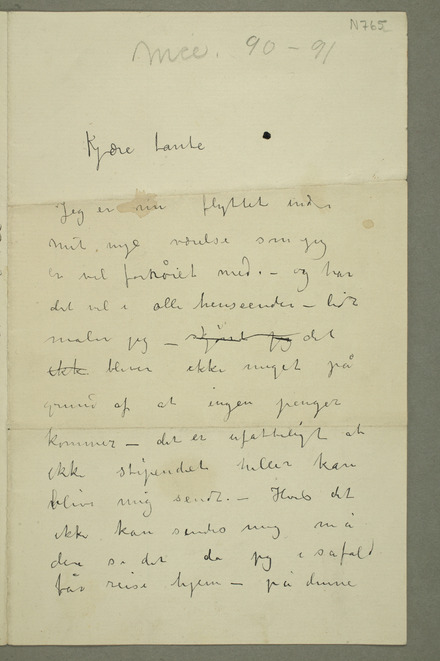 N765
Nice. 90-91
Kjære tante
Jeg er nu flyttet ind i
mit nye værelse som jeg
er vel fornøiet med. – og har
det vel i alle henseender – lidt
maler jeg – skjønt jeg det
ikke bliver ikke meget på
grund af at ingen penger
kommer – det er ufatteligt at
ikke stipendiet heller kan
blive mig sendt. – Hvis det
ikke kan sendes mig må
dere se det da jeg i såfald
får reise hjem – på denne